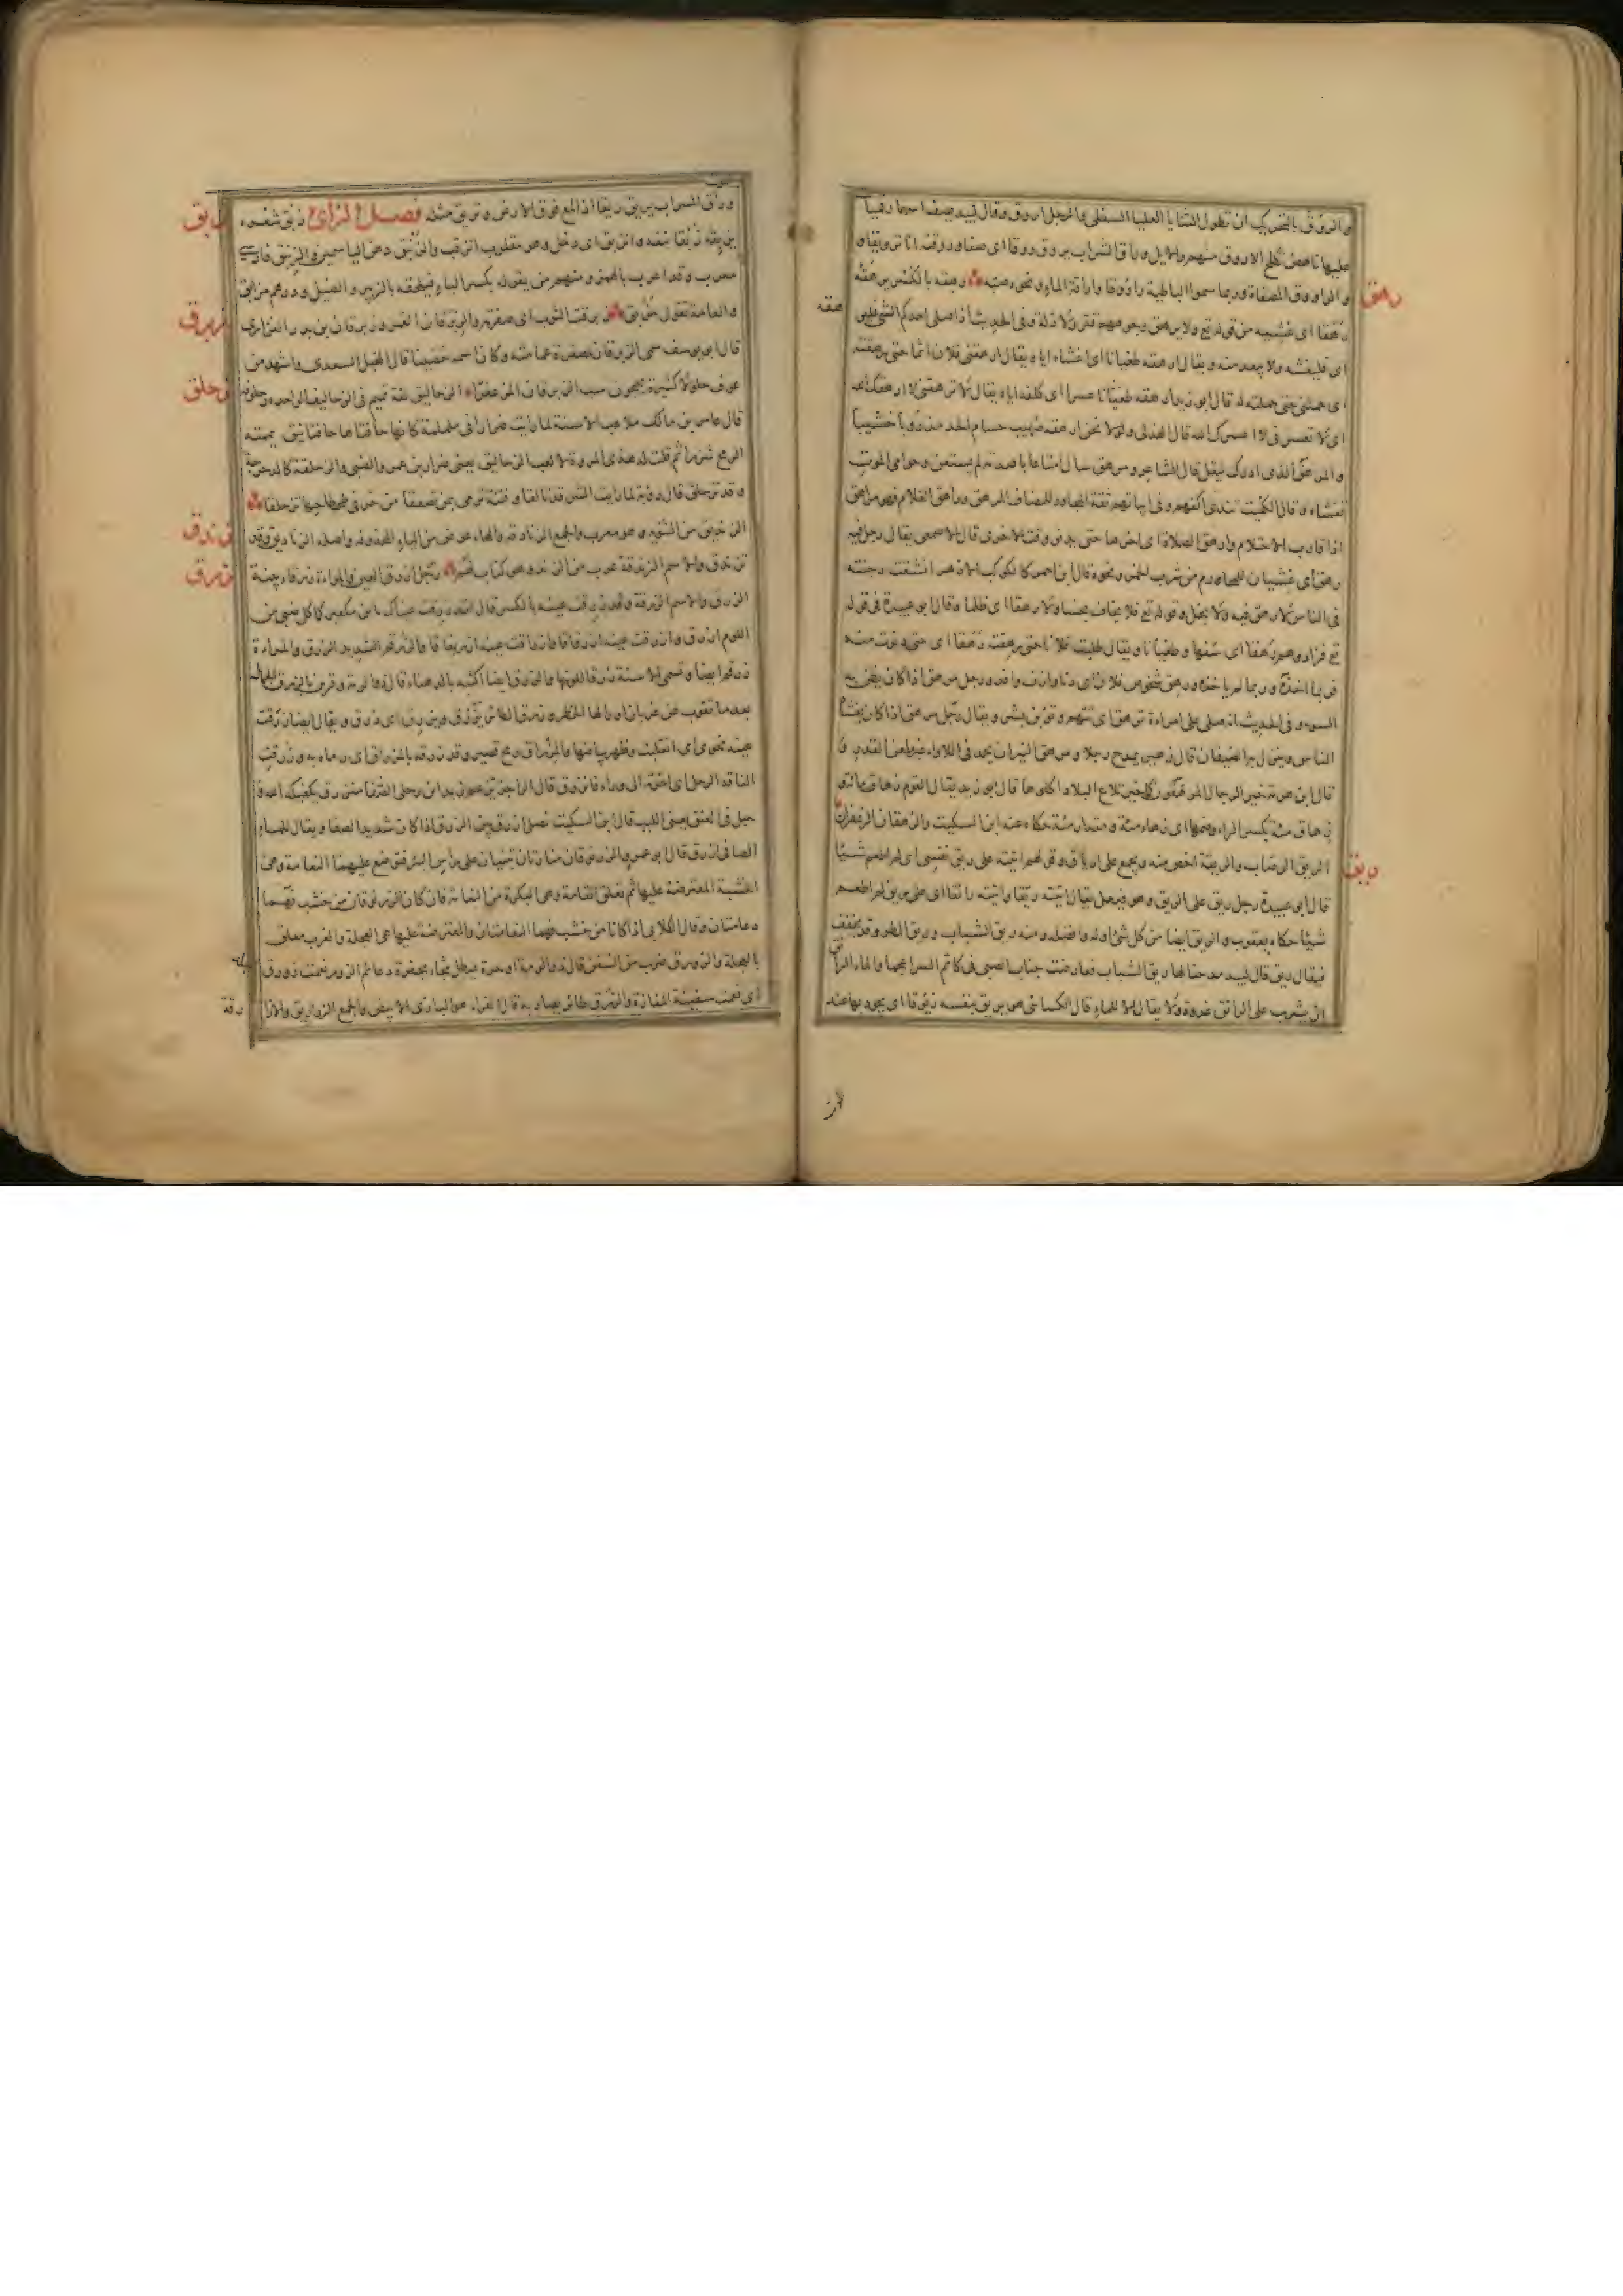 والروق بالتحريك ان تطول الثنايا العليا السفلى والرجل اروق وقال لبيد يصف اسهما
عليها ناهض تكلح الاروق منهم والايل وراق الشراب يروق روقا اى صفا وروقته انا ترويقا و
والراووق المصفاة وربما سموا الباطية راووقا واراقة الماء ونحوه صبه رهقه بالكسر يرهقه
رهق
رهقا اى غشيه من قوله تع ولا يرهق وجوههم قتر ولا ذلة وفى الحديث اذا صلى احدكم الى الشئ
اى فليغشه ولا يبعد منه ويقال ارهقه طغيانا اى اغشاه اياه يقال ارهقنى فلان اثما حتى رهقته
اى حملنى حتى حملته له قال ابو زيد ارهقه عسرا اى كلفه اياه يقال لا ترهقنى لا ارهقك الله
اى لا تعسرنى لا اعسرك الله قال الهذلى ولولا نحن ارهقه صهيب حسام الحد مذروبا خشيبا
والمرهق الذى ادرك ليقتل قال الشاعر ومرهق سال امتاعا باصدته لم يستعن وحوامى الموت
تغشاه وقال الكميت تندى اكفهم وفى ابياتهم ثقة المجاور والمضاف المرهق وراهق الغلام فهو مراهق
اذا قارب الاحتلام وارهق الصلاة اى اخرها حتى يدنو وقت الاخرى قال الاصمعى يقال رجل فيه
رهق اى غشيان للمحارم من شرب الخمر ونحوه قال ابن احمر كالكوكب الازهر انشقت دجنته
فى الناس لا رهق فيه ولا بخل وقوله تع فلا يخاف بخسا ولا رهقا اى ظلما وقال ابو عبيدة فى قوله
تع فزادوهم رهقا اى سفها وطغيانا ويقال طلبت فلانا حتى رهقته رهقا اى حتى دنوت منه
فربما اخذه وربما لم ياخذه ورهق شخوص فلان اى دنا وازف وافد ورجل مرهق اذا كان يظن به
السوء وفى الحديث انه صلى على امراءة ترهق اى تتهم وتؤبن بشر ويقال رجل مرهق اذا كان يغشاه
الناس وينزل به الضيفان قال زهير يمدح رجلا ومرهق النيران يحمد فى اللاواء غير ملعن القدر و
قال ابن هرمة خير الرجال المرهقون كما خير تلاع البلاد اكلوها قال ابو زيد يقال القوم زهاق مائة و
زهاق مئة بكسر الراء وضمها اى زهاء مئة ومقدار مئة حكاه عنه ابن السكيت والرهقان الزعفران
الريق الرضاب والريقة اخص منه ويجمع على ارياق وقولهم اتيته على ريق نفسى اى لم اطعم شيئا
ريق
قال ابو عبيدة رجل ريق على الريق وهو فيعل يقال اتيته ريقا واتيته رائقا اى على ريق لم اطعم
شيئا حكاه يعقوب والريق ايضا من كل شئ اوله وافضله ومنه ريق الشباب وريق المطر وقد يخفف
فيقال ريق قال لبيد مدحنا لها ريق الشباب فعارضت جناب الصبى فى كاتم السر اعجما والماء الرائق
ان يشرب على الرائق غدوة ولا يقال الا للماء قال الكسائى هو يريق بنفسه ريوقا اى يجود بها عند
وراق السراب يريق ريقا اذا لمع فوق الارض وتريق مثله فصل الزاى زبق شعره
زبق
يزبقه زبقا نتفه وانزبق اى دخل وهو مقلوب انزقب والزنبق دهن الياسمين والزئبق فارسى
معرب وقد اعرب بالهمز ومنهم من يقوله بكسر الباء فيلحقه بالزبرج والضئبل ودرهم مزابق
والعامة تقول مزبق زبرقت الثوب اى صفرته والزبرقان القمر وزبرقان بن بدر الفزارى
زبرق
قال ابو يوسف سمى الزبرقان لصفرة عمامته وكان اسمه حصينا قال المخبل السعدى واشهد من
عوف حلولا كثيرة يحجون سب الزبرقان المزعفرا الزحاليق لغة تميم فى الزحاليف الواحدة زحلوقة
زحلق
قال عامر بن مالك ملاعب الاسنة لما رايت ضرارا فى ململمة كانها حافتاها حافتا نيق يممته
الرمح شزرا ثم قلت له هذى المروة لا لعب الزحاليق يعنى ضرار بن عمرو الضبى والزحلقة كالدحرجة
وقد تزحلق قال رؤبة لما رايت الشر قد تالقا وفتنة ترمى بمن تصعقا من خر فى طحطاحها تزحلقا
الزنديق من الثنوية وهو معرب والجمع الزنادقة والهاء عوض من الياء المحذوفة واصله الزناديق وقد
زندق
تزندق والاسم الزندقة عرب من الزند وهو كتاب لهم رجل ازرق العين والمراءة زرقاء بينة
زرق
الزرق والاسم الزرقة وقد زرقت عينه بالكسر قال لقد زرقت عيناك يا ابن مكعبر كما كل ضبى من
اللوم ازرق وازرقت عينه ازرقاقا وازراقت عينه ازريقاقا والزرقم الشديد الزرق والمراءة
زرقم ايضا وتسمى الاسنة زرقا للونها والزرق ايضا اكثبة بالدهناء قال ذو الرمة وقربن بالزرق الجمائل
بعد ما تقوب عن غربان اوراكها الخطر وزرق الطائر يزرق ويزرق اى ذرق ويقال ايضا زرقت
عينه نحوى اى انقلبت وظهر بياضها والمزراق رمح قصير وقد زرقه بالمزراق اى رماه به وزرقت
الناقة الرحل اى اخرته الى وراء فانزرق قال الراجز يزعم زيد ان رحلى منزرق يكفيكه الله و
حبل فى العنق يعنى اللبب قال ابن السكيت نصل ازرق بين الزرق اذا كان شديد الصفا ويقال للماء
الصافى ازرق قال ابو عمرو والزرنوقان منارتان تبنيان على راس البئر فتوضع عليهما النعامة وهى
الخشبة المعترضة عليها ثم تعلق القامة وهى البكرة من النعامة فان كان الزرنوقان من خشب فهما
دعامتان وقال الكلابى اذا كانا من خشب فهما النعامتان والمعترضة عليها هى العجلة والغرب معلق
بالعجلة والزورق ضرب من السفن قال ذو الرمة او حرة عيطل ثبجاء مجفرة دعائم الزور نعمت زورق
اى نعمت سفينة المفازة والزرق طائر يصاد به قال الفراء هو البازى الابيض والجمع الزراريق والازا
رقة